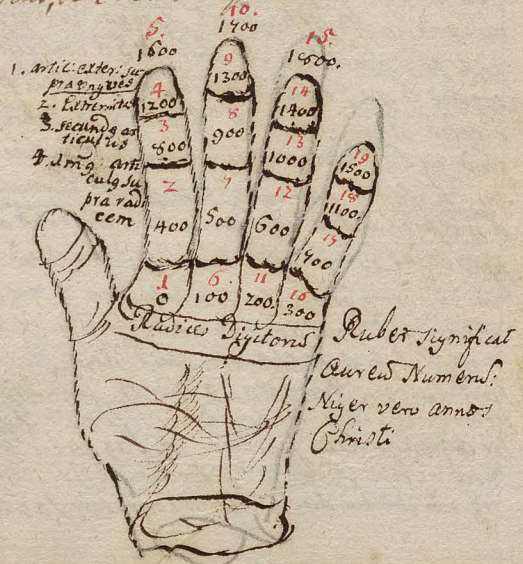 5.
1600
10.
1700
15.
1800.
1. artic: exter: su
pra ngves
2. Extremitas
3. secundg ar
ticulus
4. Img: arti
culg su
pra rad
cem
4
1200
3
800
2
400
1
0
9
1300
8
900
7
500
6
100
14
1400
13
1000
12
600
11
200
19
1500
18
1100
700
16
300
Radices Digitorū
Ruber significat
aureū Numerū:
Niger vero annos
Christi